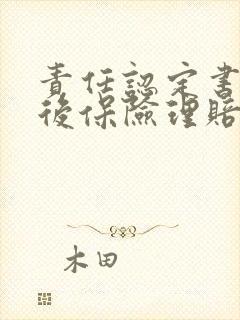 責任認定書
後保險理賠
木田